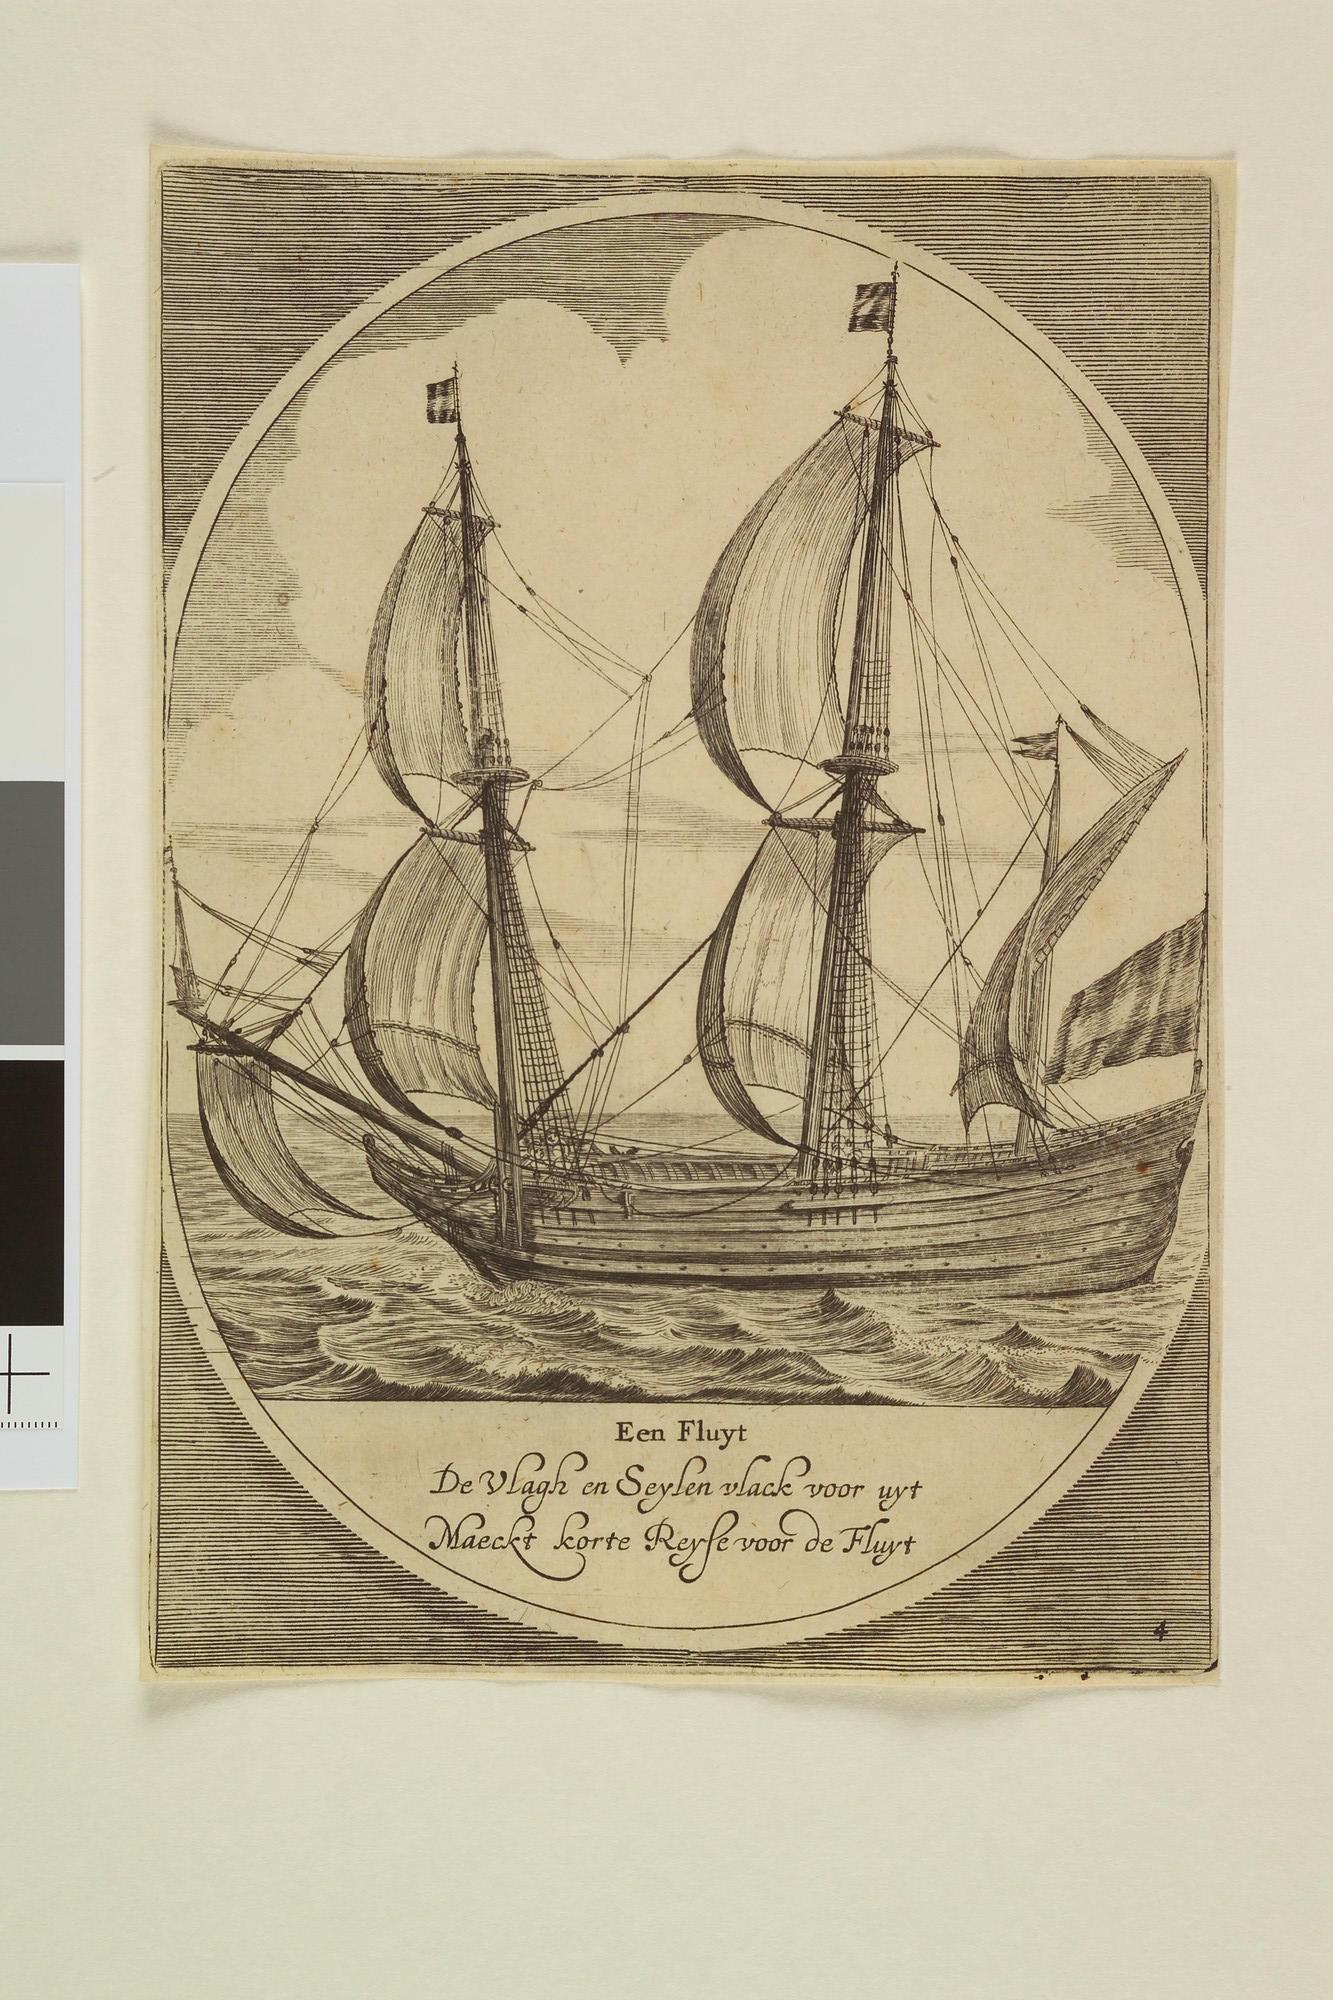 Een Fluyt
De Vlagh en Seylen vlack voor uyt
Maeckt korte Reyse voor de Fluyt
4